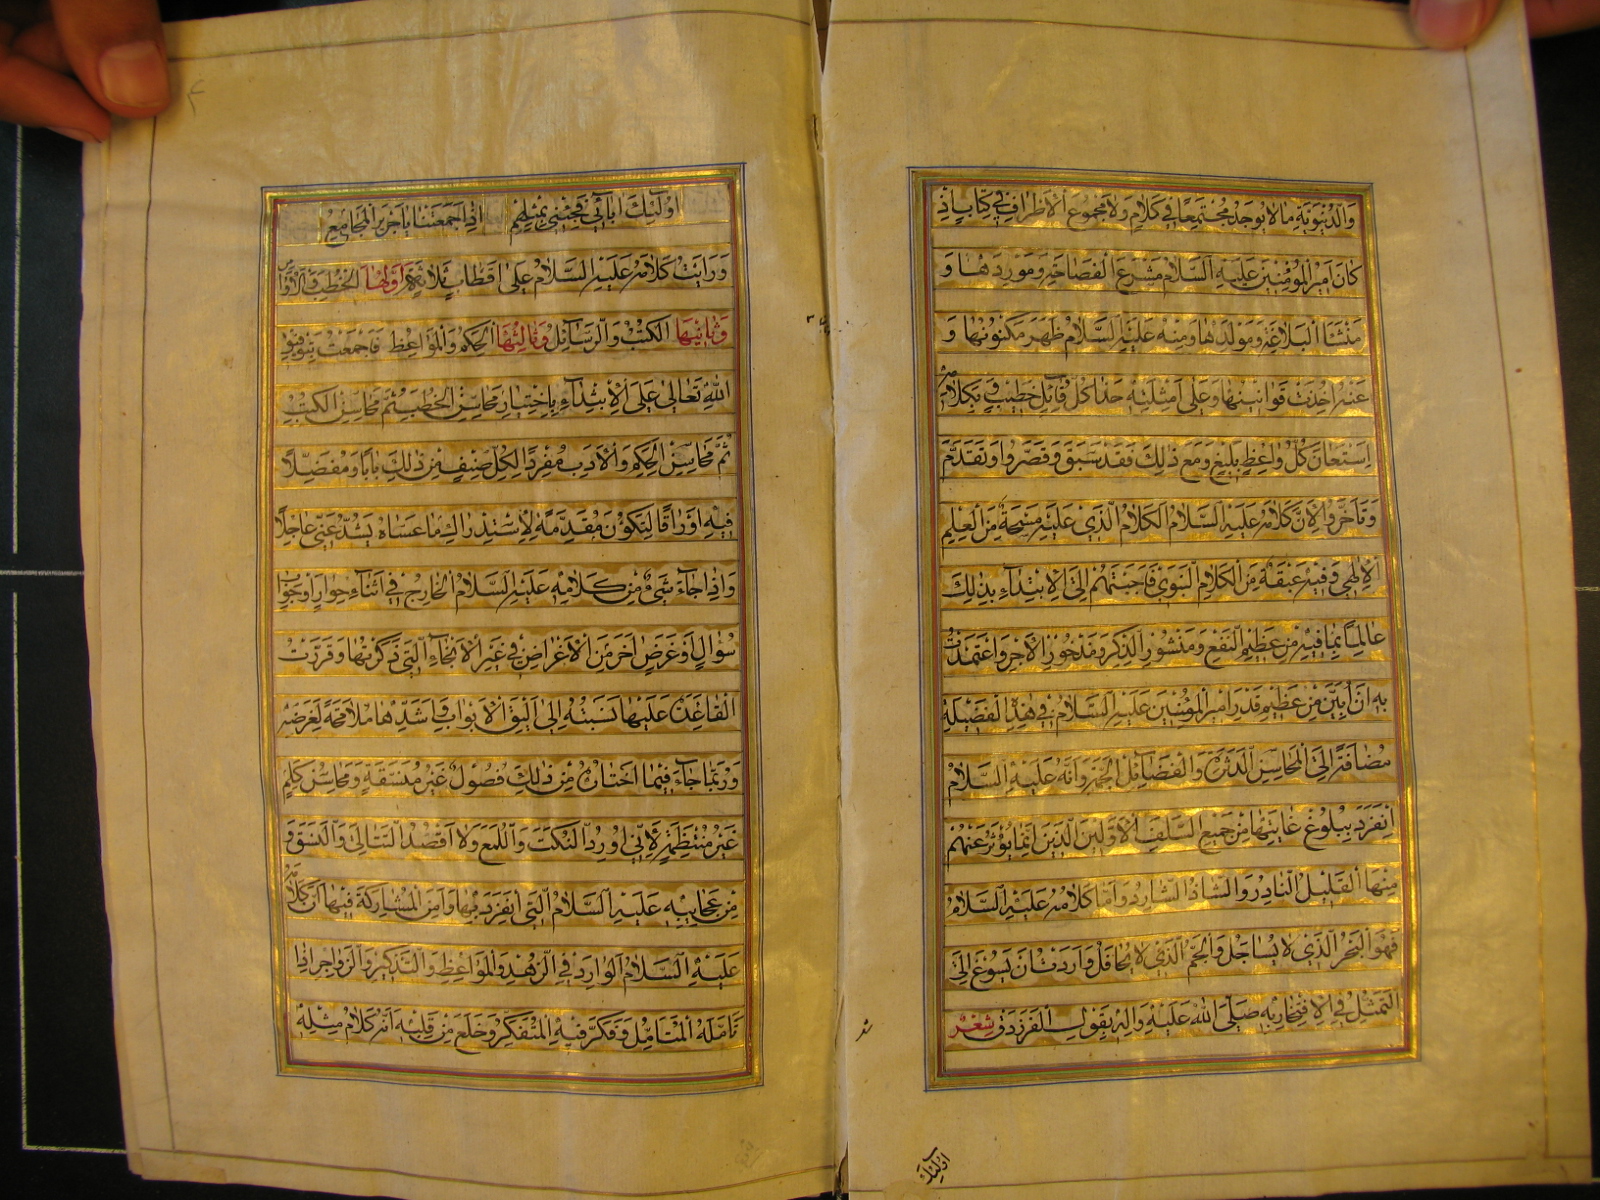 والدنيوية ما لا يوجد مجتمعا في كلام ولا مجموع الاطراف في كتاب اذ
كان امير المؤمنين عليه السلام مشرع الفصاحة وموردها و
منشأ البلاغة ومولدها ومنه عليه السلام ظهر مكنونها و
عنه اخذت قوانينها وعلى امثلته حذا كل قائل خطيب وبكلامه
استعان كل واعظ بليغ ومع ذلك فقد سبق وقصروا وتقدم
وتأخروا لان كلامه عليه السلام الكلام الذي عليه مسحة من العلم
الالهي وفيه عبقة من الكلام النبوي فاجبتهم الى الابتداء بذلك
عالما بما فيه من عظيم النفع ومنشور الذكر ومذخور الاجر واعتمدت
به ان ابين من عظيم قدر امير المؤمنين عليه السلام في هذه الفضيلة
مضافة الى المحاسن الدثرة والفضائل الجمة وانه عليه السلام
انفرد ببلوغ غايتها من جميع السلف الاولين الذين انما يؤثر عنهم
منها القليل النادر والشاذ الشارد واما كلامه عليه السلام
فهو البحر الذي لا يساجل والجم الذي لا يحافل واردت ان يسوغ لي
التمثل في الافتخار به صلى الله عليه واله بقول الفرزدق شعر
اولئك
اولئك ابائي فجئني بمثلهم اذا جمعتنا يا جرير المجامع
ورايت كلامه عليه السلام على اقطاب ثلاثة اولها الخطب والاوامر
وثانيها الكتب والرسائل وثالثها الحكم والمواعظ فاجمعت بتوفيق
الله تعالى على الابتداء باختيار محاسن الخطب ثم محاسن الكتب
ثم محاسن الحكم والادب مفردا لكل صنف من ذلك بابا ومفصلا
فيه اوراقا لتكون مقدمة لاستدراك ما عساه يشذ عني عاجلا
واذا جاء شيء من كلامه عليه السلام الخارج في اثناء حوار او جواب
سؤال او غرض اخر من الاغراض في غير الانحاء التي ذكرتها وقررت
القاعدة عليها نسبته الى اليق الابواب واشدها ملامحة لغرضه
وربما جاء فيما اختاره من ذلك فصول غير متسقة ومحاسن كلم
غير منتظمة لاني اورد النكت واللمع ولا اقصد التتالي والنسق و
من عجايبه عليه السلام التي انفرد بها وامن المشاركة فيها ان كلامه
عليه السلام الوارد في الزهد والمواعظ والتذكير والزواجر اذا
تامله المتامل وفكر فيه المتفكر وخلع من قلبه انه كلام مثله